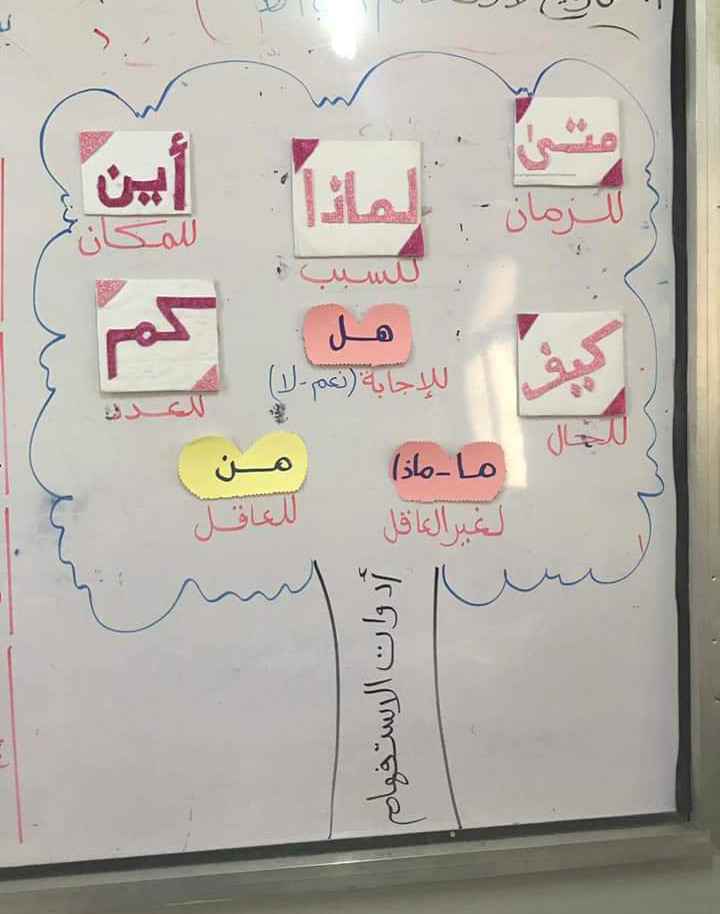 متى
للزمان
لماذا
للسبب
أين
للمكان
كيف
للحال
هل
للإجابة (نعم - لا)
كم
للعدد
ما - ماذا
لغير العاقل
من
للعاقل
أدوات الاستفهام